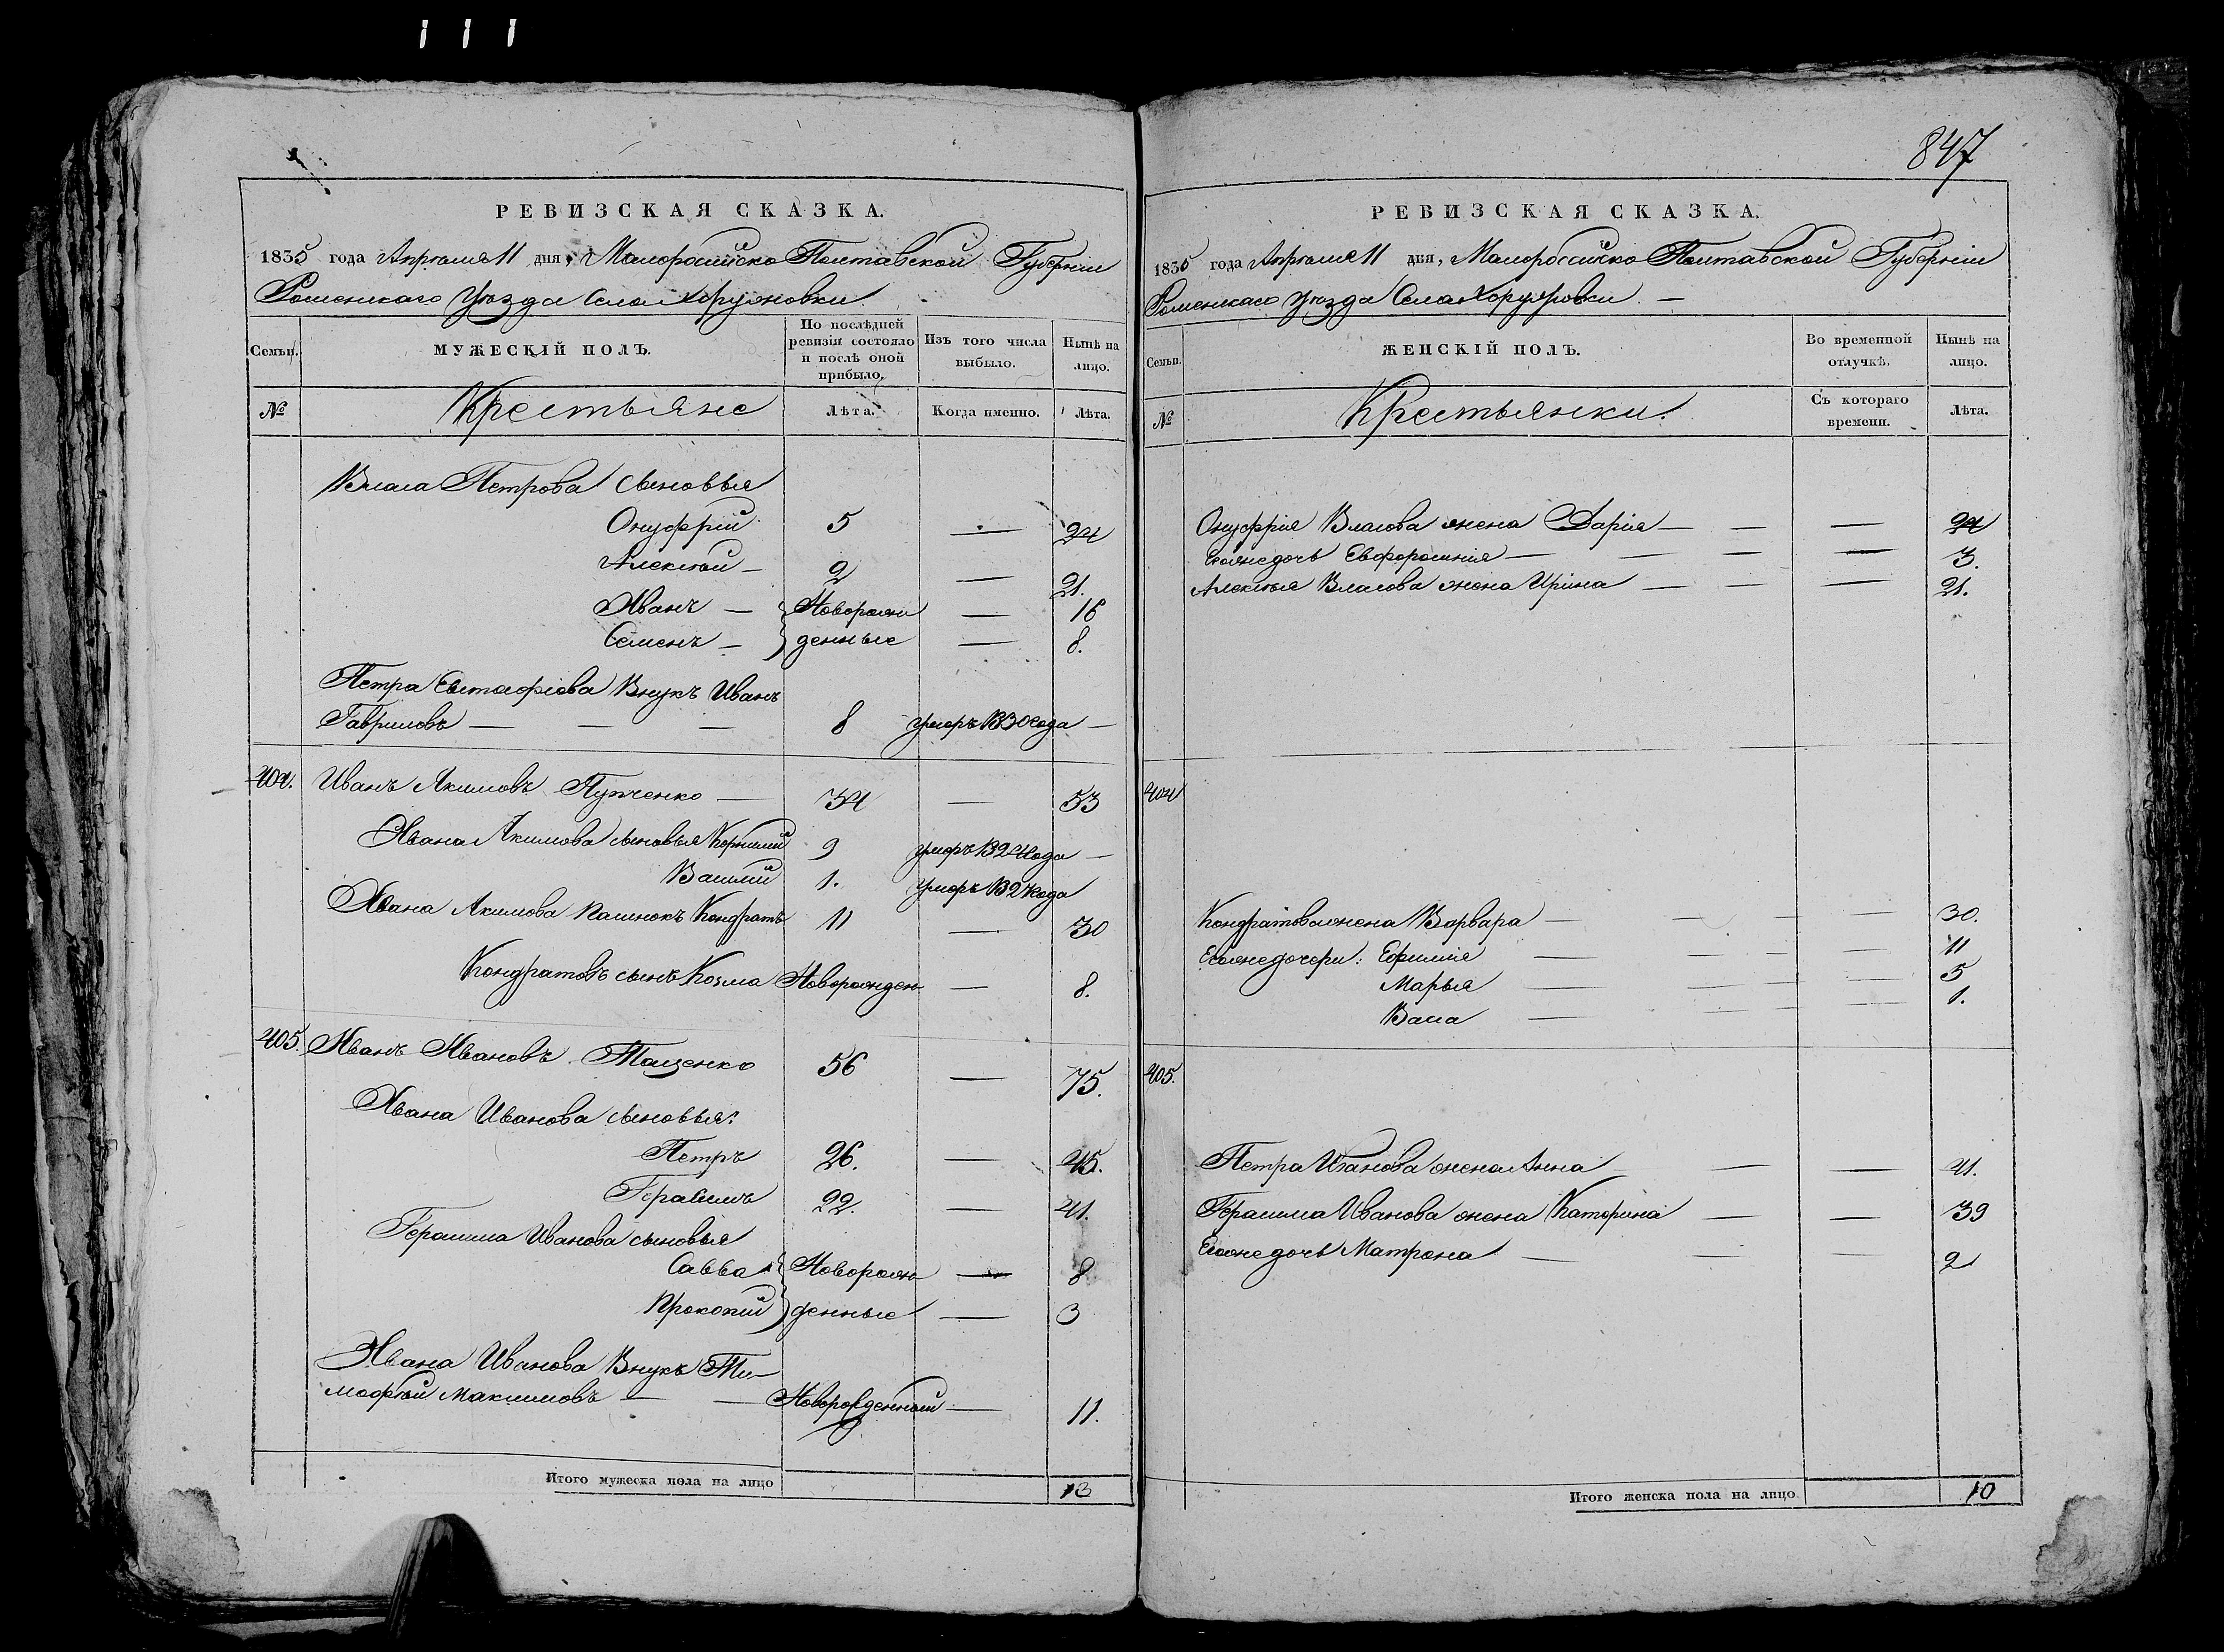 847
РЕВИЗСКАЯ СКАЗКА.
1835 года Апрѣля 11 дня, Малоросійско Полтавской Губерніи
Роменскаго Уѣзда Села Хоружовки
Семьи.
МУЖЕСКІЙ ПОЛЪ.
По послѣдней ревизіи состояло и послѣ оной прибыло.
Изъ того числа выбыло.
Нынѣ на лицо.
№
Крестьяне
Лѣта.
Когда именно.
Лѣта.
Власа Петрова сыновья
Онуфрій 5 — 24
Алексѣй — 2 — 21.
Иванъ — Новорож — 16
Семенъ — денные — 8.
Петра Евстафіева Внукъ Иванъ
Гавриловъ — — — 8 умеръ 1830 года —
404. Иванъ Якимовъ — 34 — 53
Ивана Якимова сыновья Корнилій 9 умеръ 1824 года —
Василій 1. умеръ 1827 года
Ивана Акимова Пасынокъ Кондратъ 11 — 30
Кондратовъ сынъ Козма Новорожден — 8.
405. Иванъ Ивановъ Тащенко 56 — 75.
Ивана Иванова сыновья:
Петръ 26. — 45.
Герасимъ 22. — 41.
Герасима Иванова сыновья
Савва Новорож — 8
Прокопій денные — 3
Ивана Иванова Внукъ Ти-
мофѣй Максимовъ — — Новорожденный — 11.
Итого мужеска пола на лицо 13
РЕВИЗСКАЯ СКАЗКА.
1835 года Апрѣля 11 дня, Малороссійско Полтавской Губерніи
Роменскаго Уѣзда Села Хоружовки. —
Семьи.
ЖЕНСКІЙ ПОЛЪ.
Во временной отлучкѣ.
Нынѣ на лицо.
№
Крестьянки.
Съ котораго времени.
Лѣта.
Онуфрія Власова жена Дарія — — — 24
Егоже дочь Евфросинія — — — — 3.
Алексѣя Власова жена Ирина — — — 21.
404
Кондратова жена Варвара — — — — 30.
Егоже дочери: Ефимія — — — — 11
Марья — — — — 5
Васа — — — — 1.
405.
Петра Иванова жена Анна — — — 41.
Герасима Иванова жена Катерина — — 39
Егоже дочь Матрона — — — 2
Итого женска пола на лицо 10